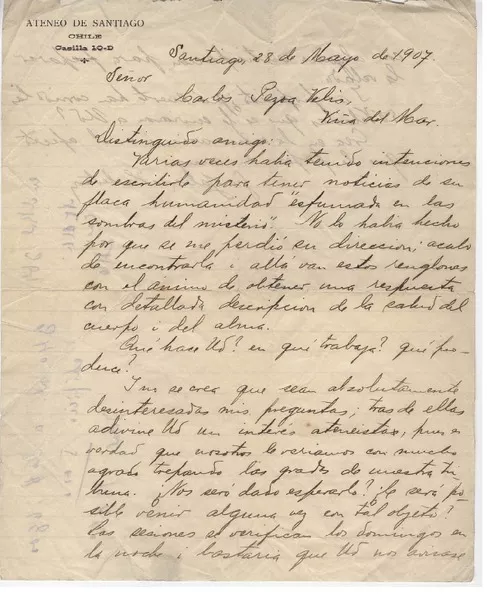 ATENEO DE SANTIAGO
CHILE
Casilla 10-D
Santiago, 28 de Mayo de 1907.
Señor
Carlos Pezoa Velis.
Viña del Mar.
Distinguido amigo:
Varias veces habia tenido intenciones
de escribirle para tener noticias de su
flaca humanidad "esfumada en las
sombras del misterio". No lo habia hecho
por que se me perdió su direccion; acabo
de encontrarla i allá van estos renglones
con el ánimo de obtener una respuesta
con detallada descripcion de la salud del
cuerpo i del alma.
Qué hase Ud? en qué trabaja? qué pro-
duce?
I no se crea que sean absolutamente
desinteresadas mis preguntas; tras de ellas
adivine Ud un interés ateneista, pues es
verdad que nosotros le veriamos con mucho
agrado trepando las gradas de nuestra tri-
buna. ¿Nos será dado esperarlo? ¿Le será po-
sible venir alguna vez con tal objeto?
Las sesiones se verifican los domingos en
la noche i bastaria que Ud nos avisase